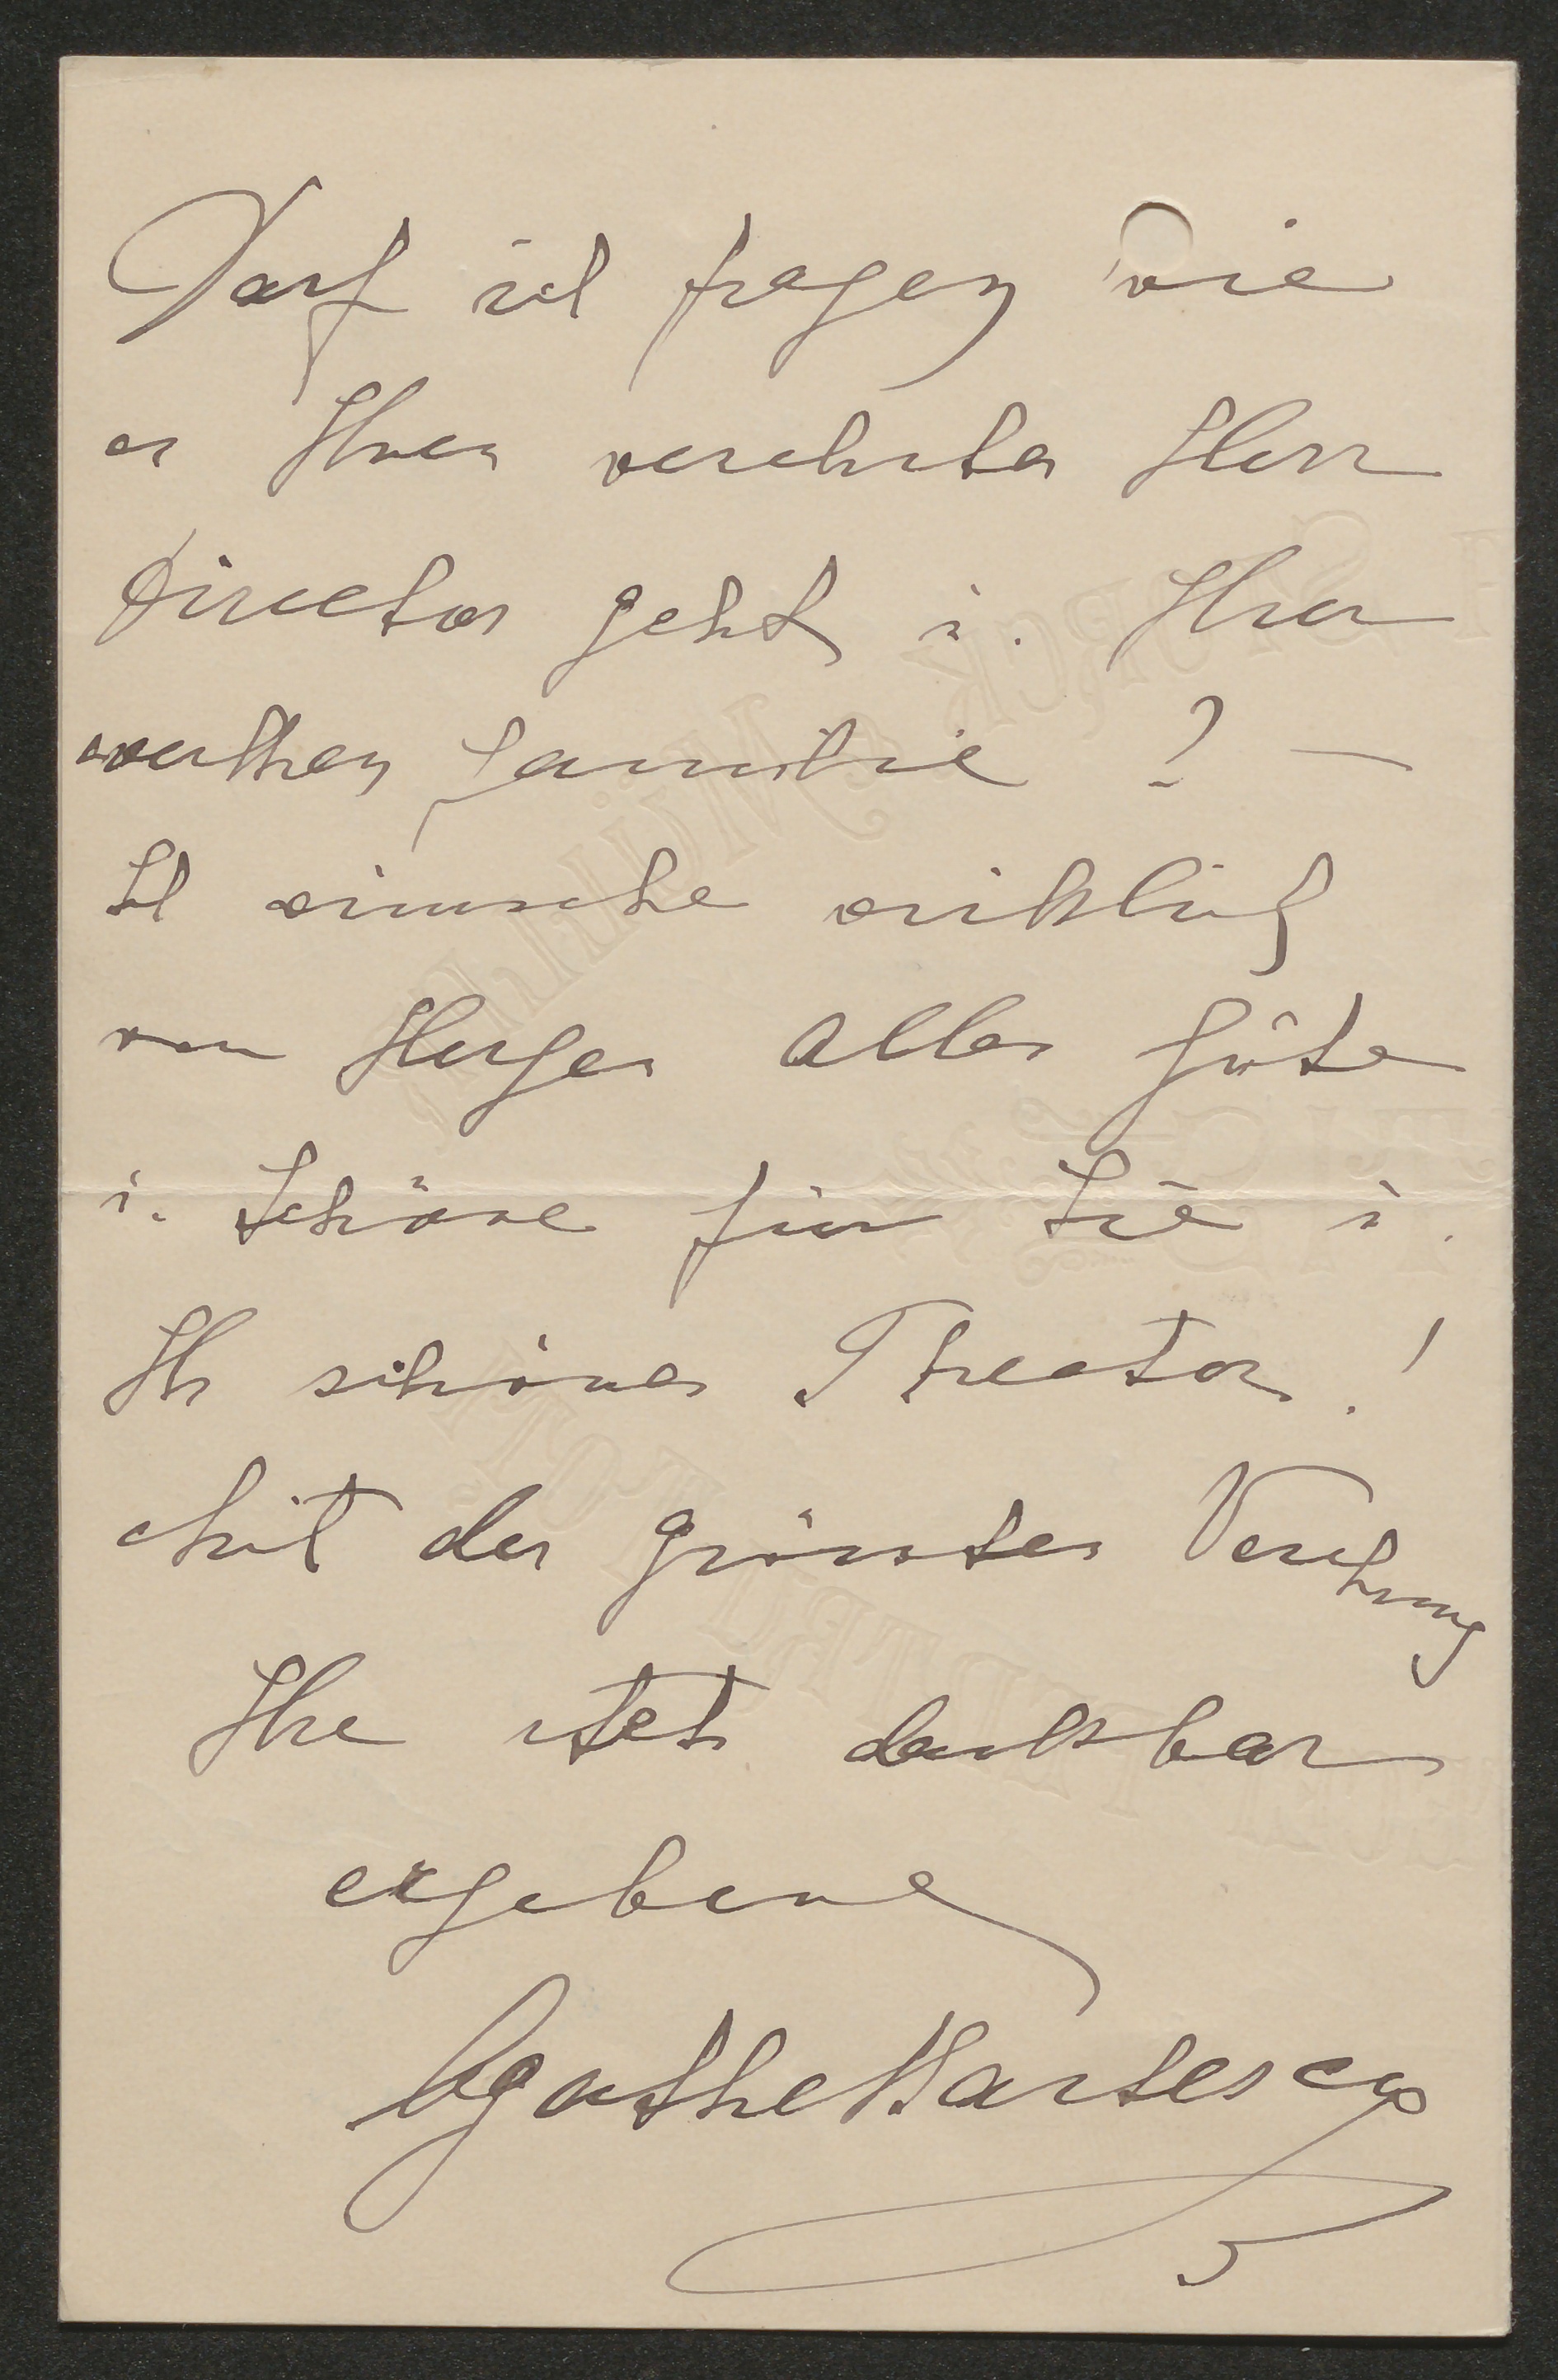 Darf ich fragen wie
es Ihnen verehrter Herr
Director geht ü. Ihrer
werthen Familie ? —
Ich wünsche wirklich
von Herzen alles Güte
ü. Schöne für Sie ü.
Ihr schönes Theater !
Mit der grössten Verehrung
Ihre stets dankbar
ergebene
Agathe Barsescu